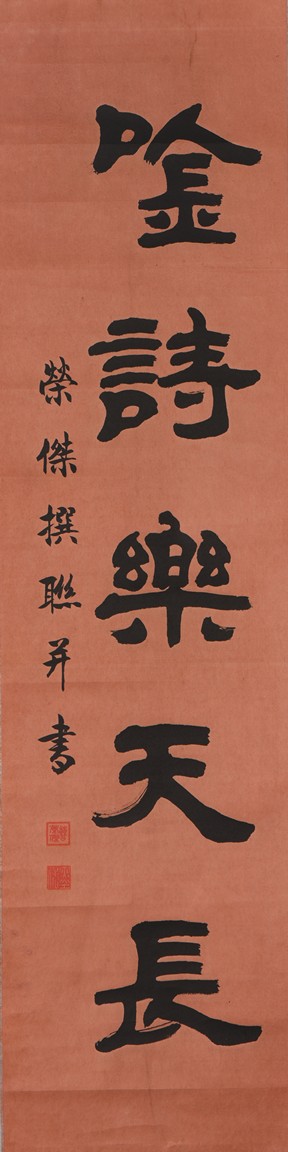 唫詩樂天長
榮傑撰聯并書